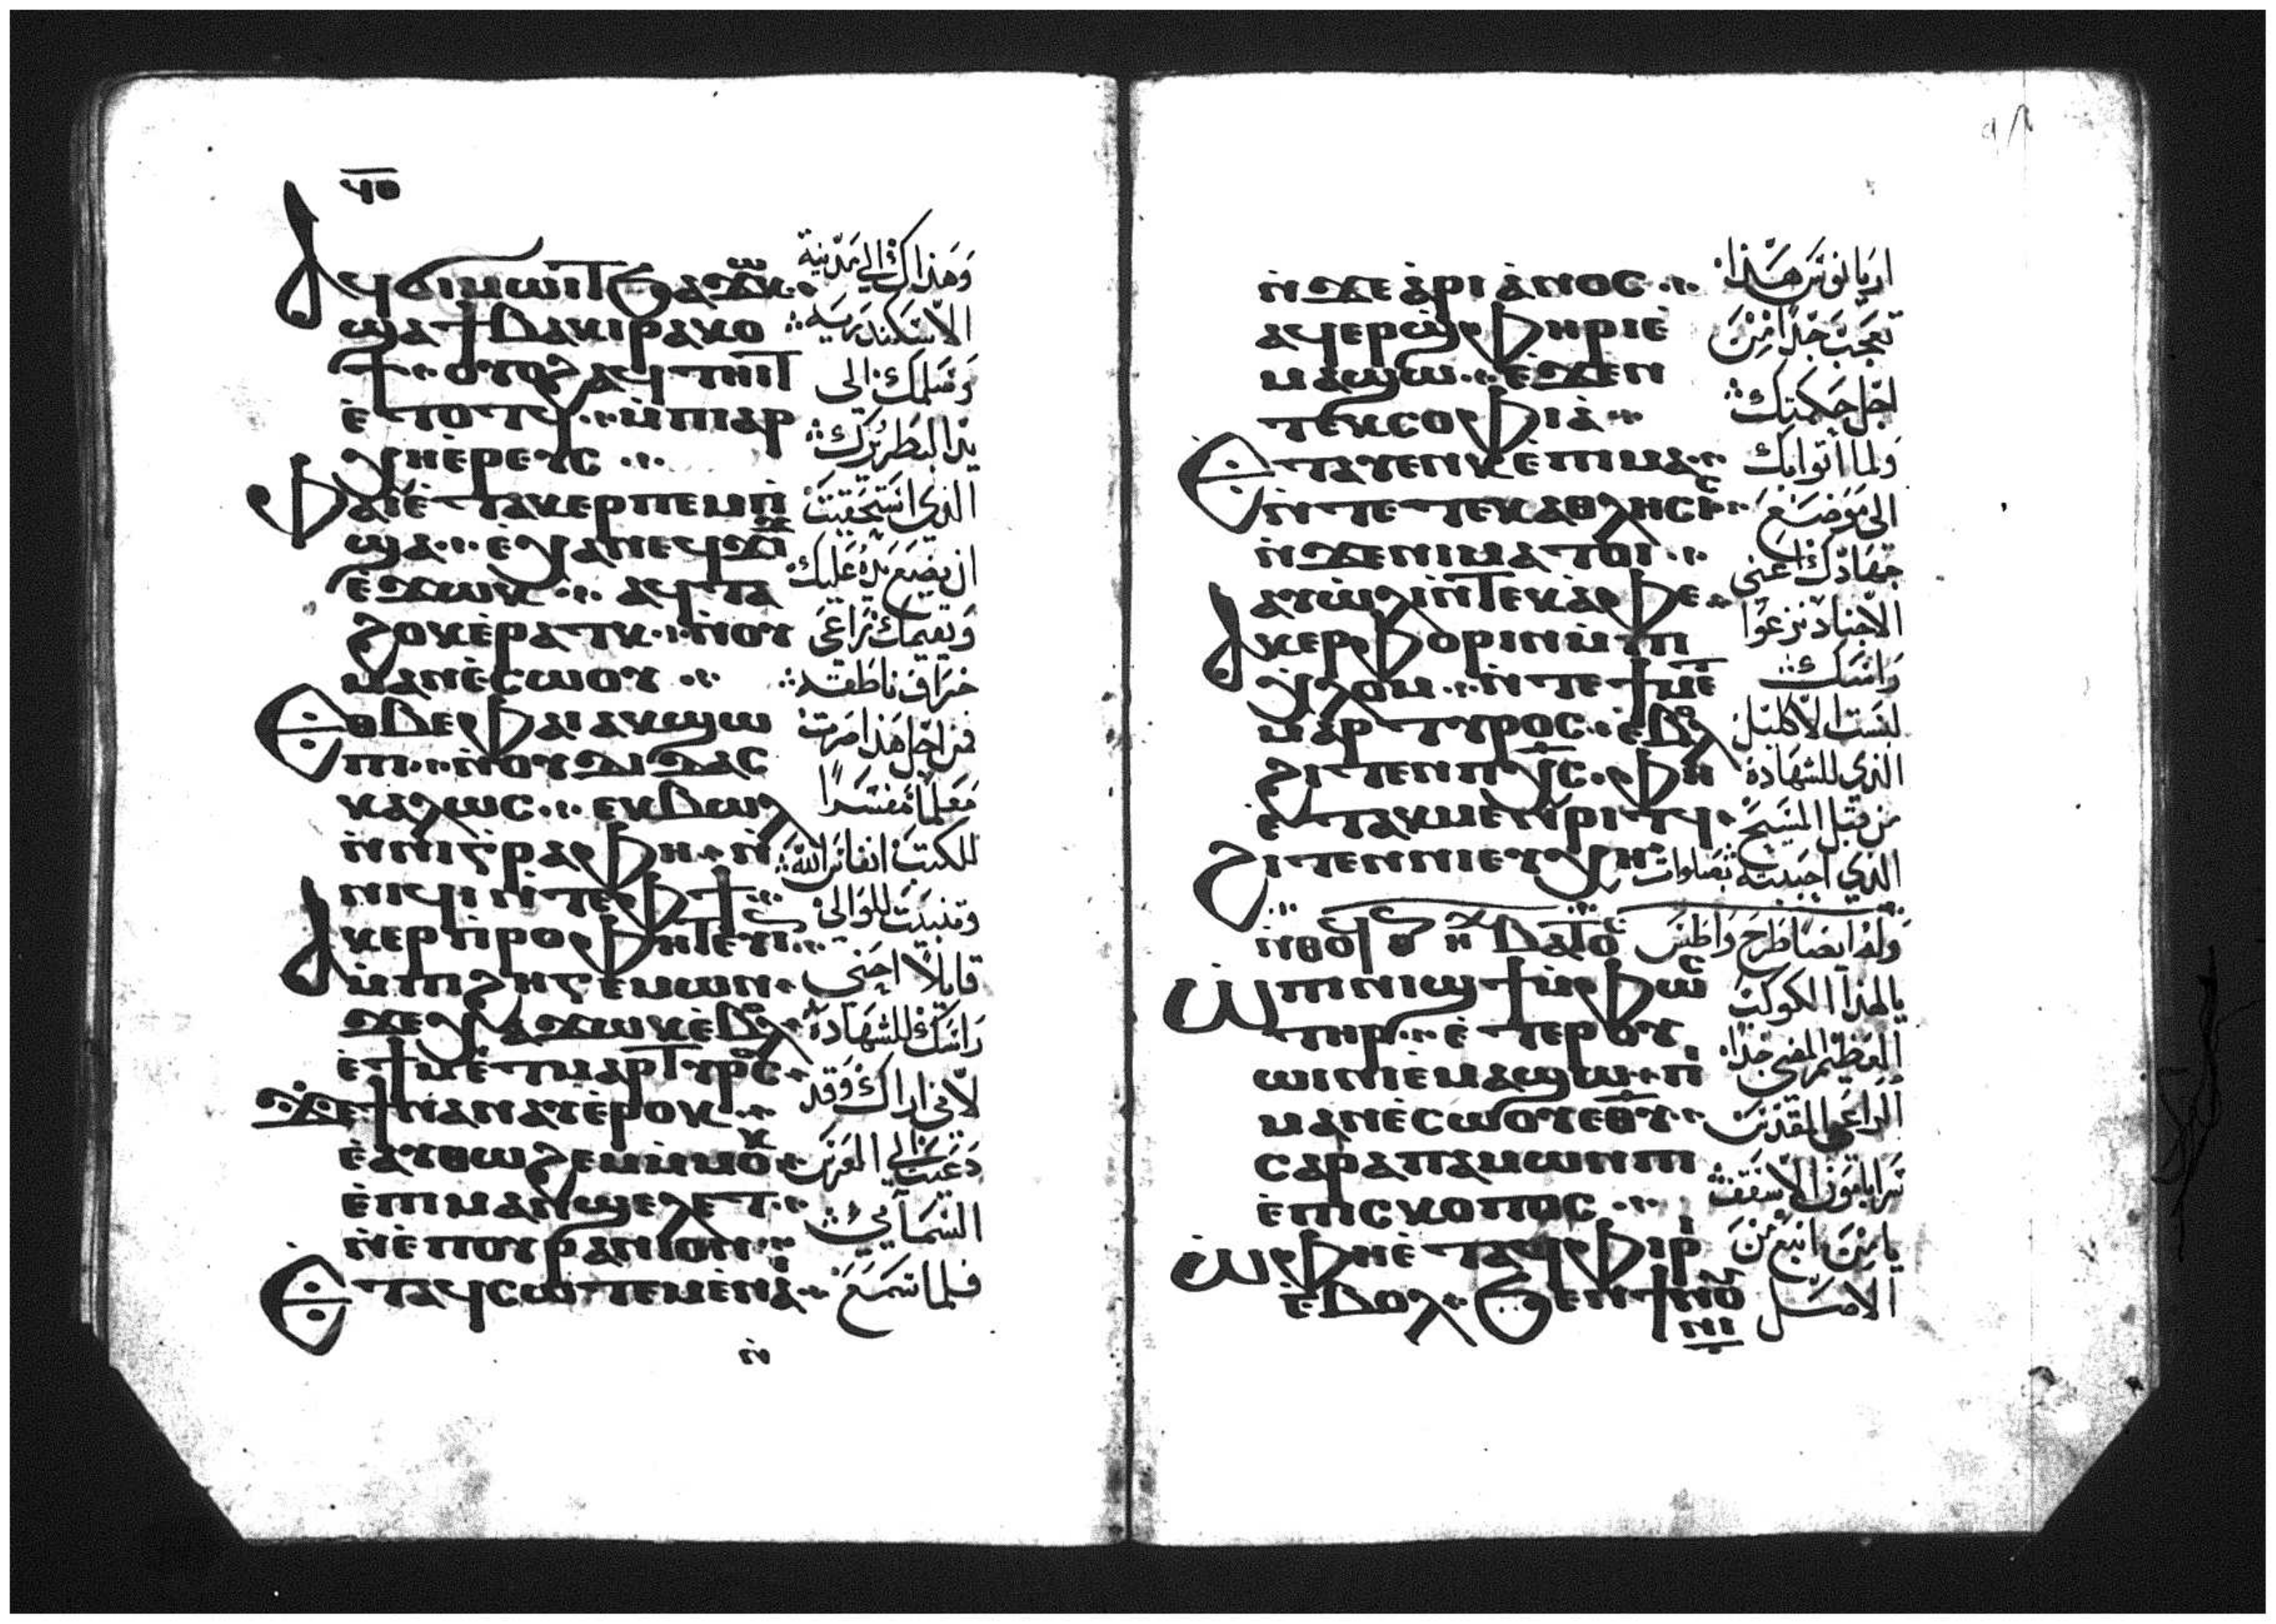 ϥⲑ
ⲁϥϭⲓⲙⲱⲓⲧϧⲁϫⲱⲕ
ϣⲁϯⲃⲁⲕⲓⲣⲁⲕⲟ
ϯ ⲟⲩⲟϩⲁϥⲧⲏⲓⲧ
ⲉ̀ⲧⲟⲧϥ ⲙ̀ⲡⲓⲁⲣ
ⲭⲏⲉ̀ⲣⲉⲩⲥ
ⲫⲁⲓⲉ̀ⲧⲁⲕⲉⲣⲡⲉⲙⲡ̀
ϣⲁ ⲉ̀ⲭⲁⲛⲉϥϫⲓϫ
ⲉ̀ϫⲱⲕ ⲁϥⲧⲁ
ϩⲟⲕⲉ̀ⲣⲁⲧⲕ ⲛ̀ⲟⲩ
ⲙⲁⲛⲉ̀ⲥⲱⲟⲩ
ⲉⲑⲃⲉⲫⲁⲓⲁⲕϣⲱ
ⲡⲓ ⲛ̀ⲟⲩⲇⲓⲇⲁⲥ
ⲕⲁⲗⲱⲥ ⲉⲕⲃⲱⲗ
ⲛ̀ⲛⲓⲅ̀ⲣⲁⲫⲏ ⲛ̀
ⲛⲓϥⲓⲛ̀ⲧⲉⲫϯ
ⲁⲕⲉⲣⲡ̀ⲣⲟⲫⲏⲧⲉⲩⲓⲛ
ⲙ̀ⲡⲓϩⲏⲅⲉⲙⲱⲛ
ϫⲉⲭⲁϫⲱⲕⲉ̀ⲃⲟⲗ
ⲉ̀ϯⲙⲉⲧⲙⲁⲣⲧⲩⲣⲟⲥ
ϫⲉϯⲛⲁⲛⲁⲩⲉ̀ⲣⲟⲕ
ⲉ̀ⲁⲩⲑⲱϩⲉⲙⲙ̀ⲙⲟⲕ
ⲉ̀ⲡⲓⲙⲁⲛϣⲉⲗⲉⲧ
ⲛ̀ⲉ̀ⲡⲟⲩⲣⲁⲛⲓⲟⲛ
ⲉⲧⲁϥⲥⲱⲧⲉⲙⲉ̀ⲛⲁⲓ
ⲛ̀
وهذاك الي مدينة
الاسكندريه
وسلمك الى
يد البطريرك
الذي استحقيت
ان يضع يده عليك
وتقيمك راعى
خراف ناطقه
فمن اجل هذا صرت
معلما مفسرا
للكتب انفاس الله
وتنبيت للوالى
قايلا احنى
راسك للشهادة
لاني اراك وقد
دعيت الي العرس
السمآيي
فلما سمع
ⲛ̀ϫⲉⲁ̀ⲣⲓⲁ̀ⲛⲟⲥ
ⲁϥⲉⲣϣ̀ⲫⲏⲣⲓⲉ̀
ⲙⲁϣⲱ ⲉ̀ϫⲉⲛ
ⲧⲉⲕⲥⲟⲫⲓⲁ̀
ⲉⲧⲁⲩⲉⲛⲕⲉ̀ⲡⲓⲙⲁ
ⲛ̀ⲧⲉⲧⲉⲕⲁⲑⲗⲏⲥⲓⲥ
ⲛ̀ϫⲉⲛⲓⲙⲁⲧⲟⲓ
ⲁⲩⲱ̀ⲗⲓⲛ̀ⲧⲉⲕⲁ̀ⲫⲉ
ⲁⲕⲉⲣⲫⲟⲣⲓⲛⲙ̀ⲡⲓ
ⲭ̀ⲗⲟⲙ ⲛ̀ⲧⲉϯⲙⲉⲧ
ⲙⲁⲣⲧⲩⲣⲟⲥ ⲉ̀ⲃⲟⲗ
ϩⲓⲧⲉⲛⲡⲭ̅ⲥ̅ ⲫⲏ
ⲉ̀ⲧⲁⲕⲙⲉⲛⲣⲓⲧϥ
ϩⲓⲧⲉⲛⲛⲓⲉⲩⲭⲏ
ⲛ̀ⲑⲟϥ ⲟⲛ ⲏⲭ ⲃⲁⲧⲟⲥ
ⲱ̀ⲡⲓⲛⲓϣϯⲙ̀ⲫⲱⲥ
ⲧⲏⲣ ⲉ̀ⲧⲉⲣⲟⲩ
ⲱⲓⲛⲓⲉ̀ⲙⲁϣⲱ ⲡⲓ
ⲙⲁⲛⲉ̀ⲥⲱⲟⲩⲉⲑⲩ
ⲥⲁⲣⲁⲡⲁⲙⲱⲛⲡⲓ
ⲉ̀ⲡⲓⲥⲕⲟⲡⲟⲥ
ⲱ̀ⲫⲏⲉ̀ⲧⲁϥⲫⲓⲣⲓ
ⲉ̀ⲃⲟⲗ ϧⲉⲛϯⲛⲟⲩ
ⲛⲓ
اريانوس هذا
تعجب جدا من
اجل حكمتك
ولما اتوا بك
الى موضع
جهادك اعنى
الاجناد نزعوا
راسك
لبست الاكليل
الذي للشهادة
من قبل المسيح
الذي احببته بصلوات
وله ايضا طرح واطس
يا هذا الكوكب
العظيم المضي جدا
الراعي المقدس
سرابامون الاسقف
يا من انبع من
الاصل